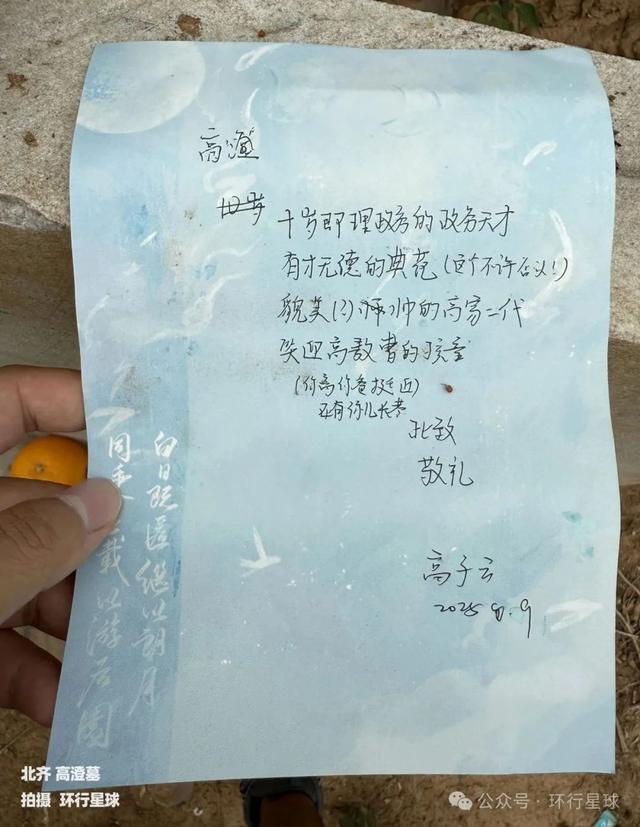 高澄
十岁即理政务的政务天才
有才无德的典范（这个不许否认！）
貌美(?)帅的高家二代
笑迎高敖曹的孩童
(你离你爸挺近)
还有你儿长恭
此致
敬礼
高子云
2025 8.9
白日既匿继以朗月
同乘载以游后园
北齐 高澄墓
拍摄 环行星球
公众号·环行星球